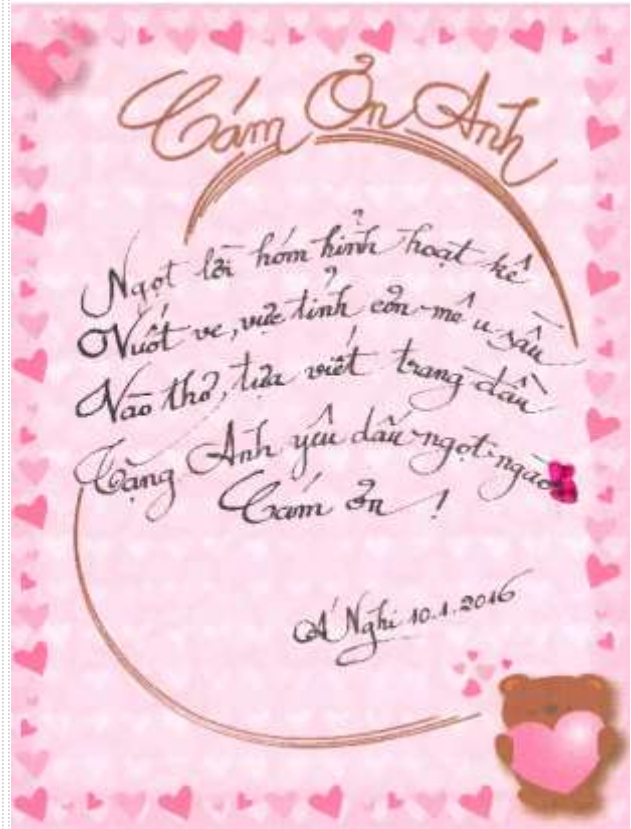 Cám Ơn Anh
Ngọt lời hóm hỉnh hoạt kê
Vuốt ve, vực tỉnh cơn mê u sầu
Vào thơ, tựa viết trang đầu
Tặng Anh yêu dấu ngọt ngào
Cám ơn !
Á Nghi 10.1.2016